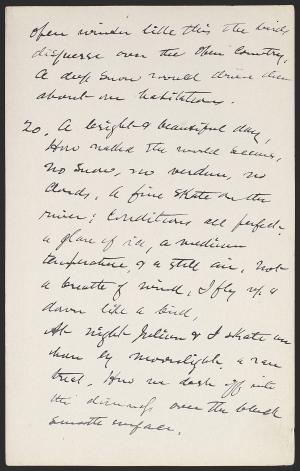 open winter like this the birds
disperse over the open country.
A deep snow would drive them
about our habitations.
20. A bright & beautiful day,
How naked the world seems,
no snow, no verdure, no
clouds. A fine skate on the
river; Conditions all perfect -
a glare of ice, a medium
temperature, & a still air, not
a breath of wind, I fly up &
down like a bird,
At night Julian & I skate an
hour by moonlight, a rare
treat. How we dash off into
the dimness over the black
smooth surface.